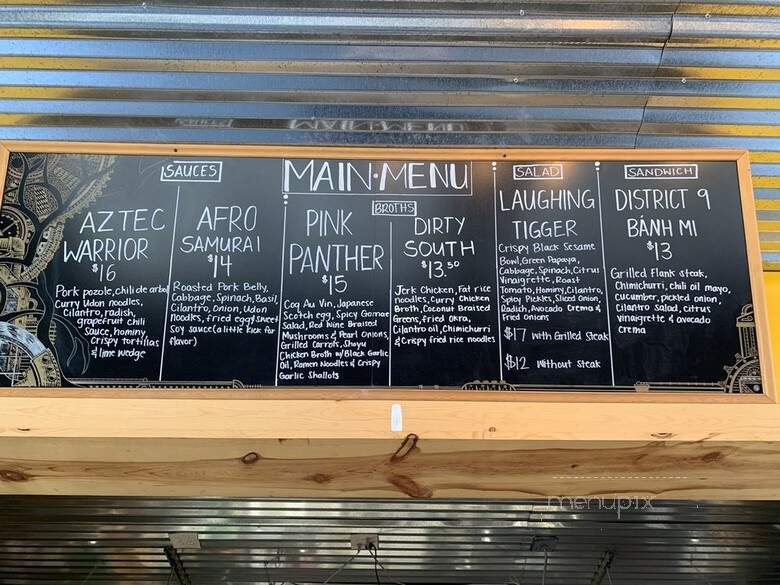 MAIN·MENU
SAUCES
AZTEC
WARRIOR
$16
Pork pozole, chili de arbol
Curry Udon noodles,
Cilantro, radish,
grapefruit chili
sauce, hominy,
crispy tortillas
& lime wedge
AFRO
SAMURAI
$14
Roasted Pork Belly,
Cabbage, Spinach, Basil,
Cilantro, Onion, Udon
Noodles, fried egg, sweet
soy sauce (a little kick for
flavor)
BROTHS
PINK
PANTHER
$15
Coq Au Vin, Japanese
Scotch egg, Spicy Gomae
Salad, Red Wine Braised
Mushrooms & Pearl Onions,
Grilled Carrots, Shoyu
Chicken Broth w/Black Garlic
Oil, Ramen Noodles & Crispy
Garlic Shallots
DIRTY
SOUTH
$13.50
Jerk Chicken, Fat rice
noodles, Curry Chicken
Broth, Coconut Braised
Greens, fried okra,
Cilantro oil, Chimichurri
& Crispy fried rice noodles
SALAD
LAUGHING
TIGGER
Crispy Black Sesame
Bowl, Green Papaya,
Cabbage, Spinach, Citrus
Vinaigrette, Roast
Tomato, Hominy, Cilantro,
Spicy Pickles, Sliced Onion,
Radish, Avocado Crema &
fried Onions
$17 with Grilled Steak
$12 without Steak
SANDWICH
DISTRICT 9
BÁNH MI
$13
Grilled Flank steak,
Chimichurri, chili oil mayo,
cucumber, pickled onion,
Cilantro Salad, citrus
vinaigrette & avocado
crema
menupix